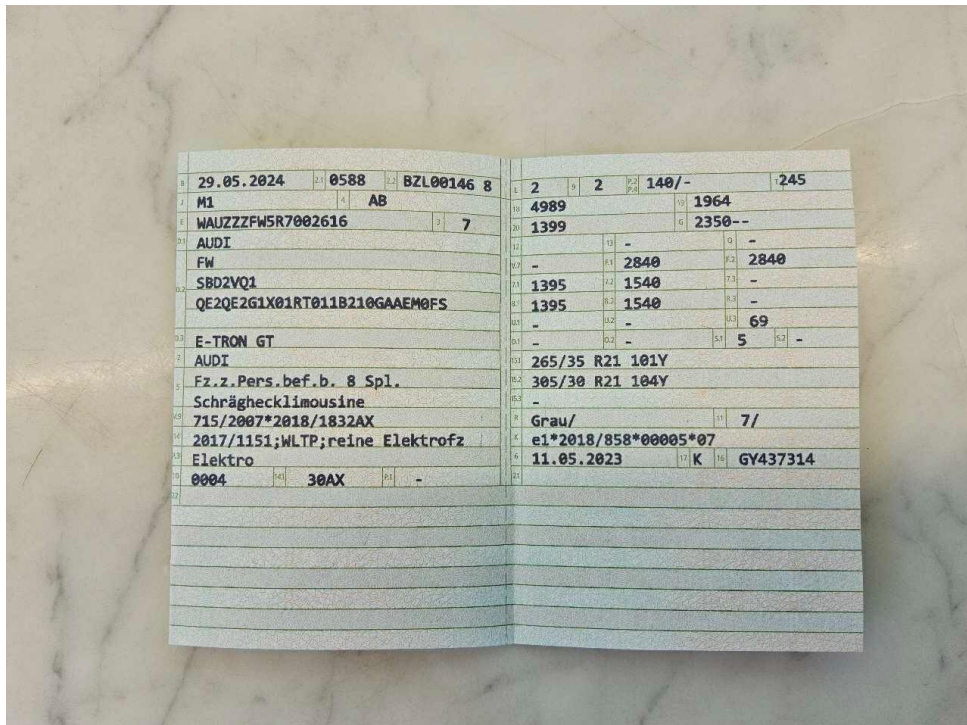 B 29.05.2024 2.1 0588 2.2 BZL00146 8
J M1 4 AB
E WAUZZZFW5R7002616 3 7
D.1 AUDI
FW
D.2 SBD2VQ1
QE2QE2G1X01RT011B210GAAEM0FS
D.3 E-TRON GT
2 AUDI
5 Fz.z.Pers.bef.b. 8 Spl.
Schräghecklimousine
V.9 715/2007*2018/1832AX
14 2017/1151;WLTP;reine Elektrofz
P.3 Elektro
10 0004 14.1 30AX P.1 -
22
L 2 9 2 P.2 P.4 140/- T 245
18 4989 19 1964
20 1399 G 2350--
12 13 - Q -
V.7 - F.1 2840 F.2 2840
7.1 1395 7.2 1540 7.3 -
8.1 1395 8.2 1540 8.3 -
U.1 - U.2 - U.3 69
O.1 - O.2 - S.1 5 S.2 -
15.1 265/35 R21 101Y
15.2 305/30 R21 104Y
15.3 -
R Grau/ 11 7/
K e1*2018/858*00005*07
6 11.05.2023 17 K 16 GY437314
21